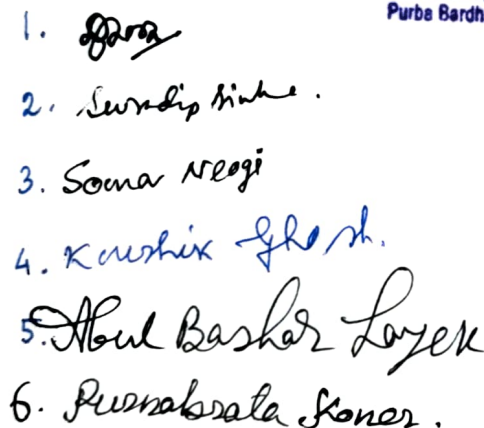 Purba Bardh
1.
2. Suvradip Sinha.
3. Soma Neogi
4. Koushik Ghosh.
5. Abul Bashar Layek
6. Purnabrata Koner.